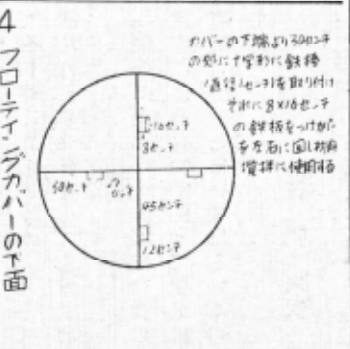 4 フローティングカバーの下面
カバーの下端より30センチ
の処に十字形に鉄棒
(直径1センチ)を取り付け
それに8×16センチ
の鉄板をつけカバー
を左右に回し初期
撹拌に使用する
16センチ
8センチ
50センチ
45センチ
12センチ